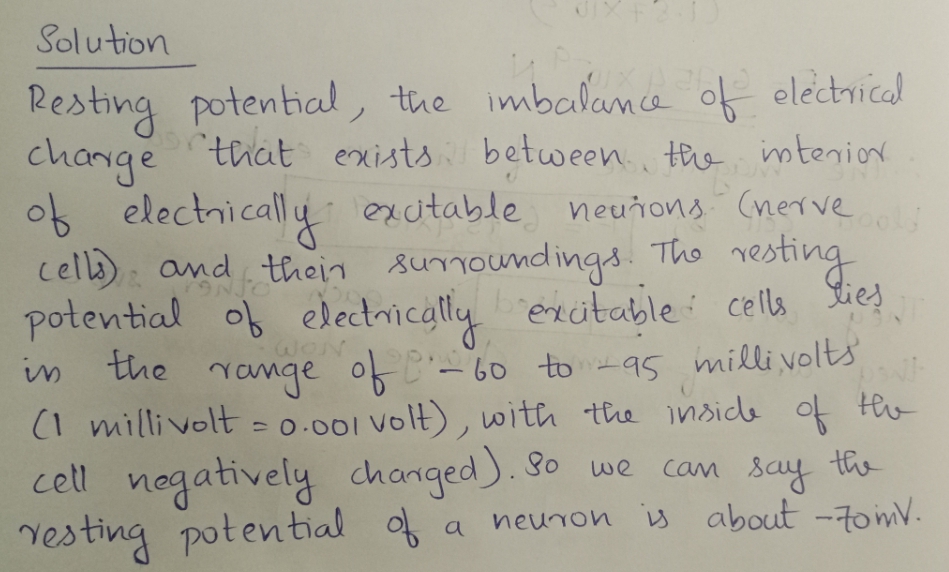 Solution
Resting potential, the imbalance of electrical
charge that exists between the interior
of electrically excitable neurons (nerve
cells) and their surroundings. The resting
potential of electrically excitable cells lies
in the range of -60 to -95 millivolts
(1 millivolt = 0.001 volt), with the inside of the
cell negatively charged). So we can say the
resting potential of a neuron is about -70mV.